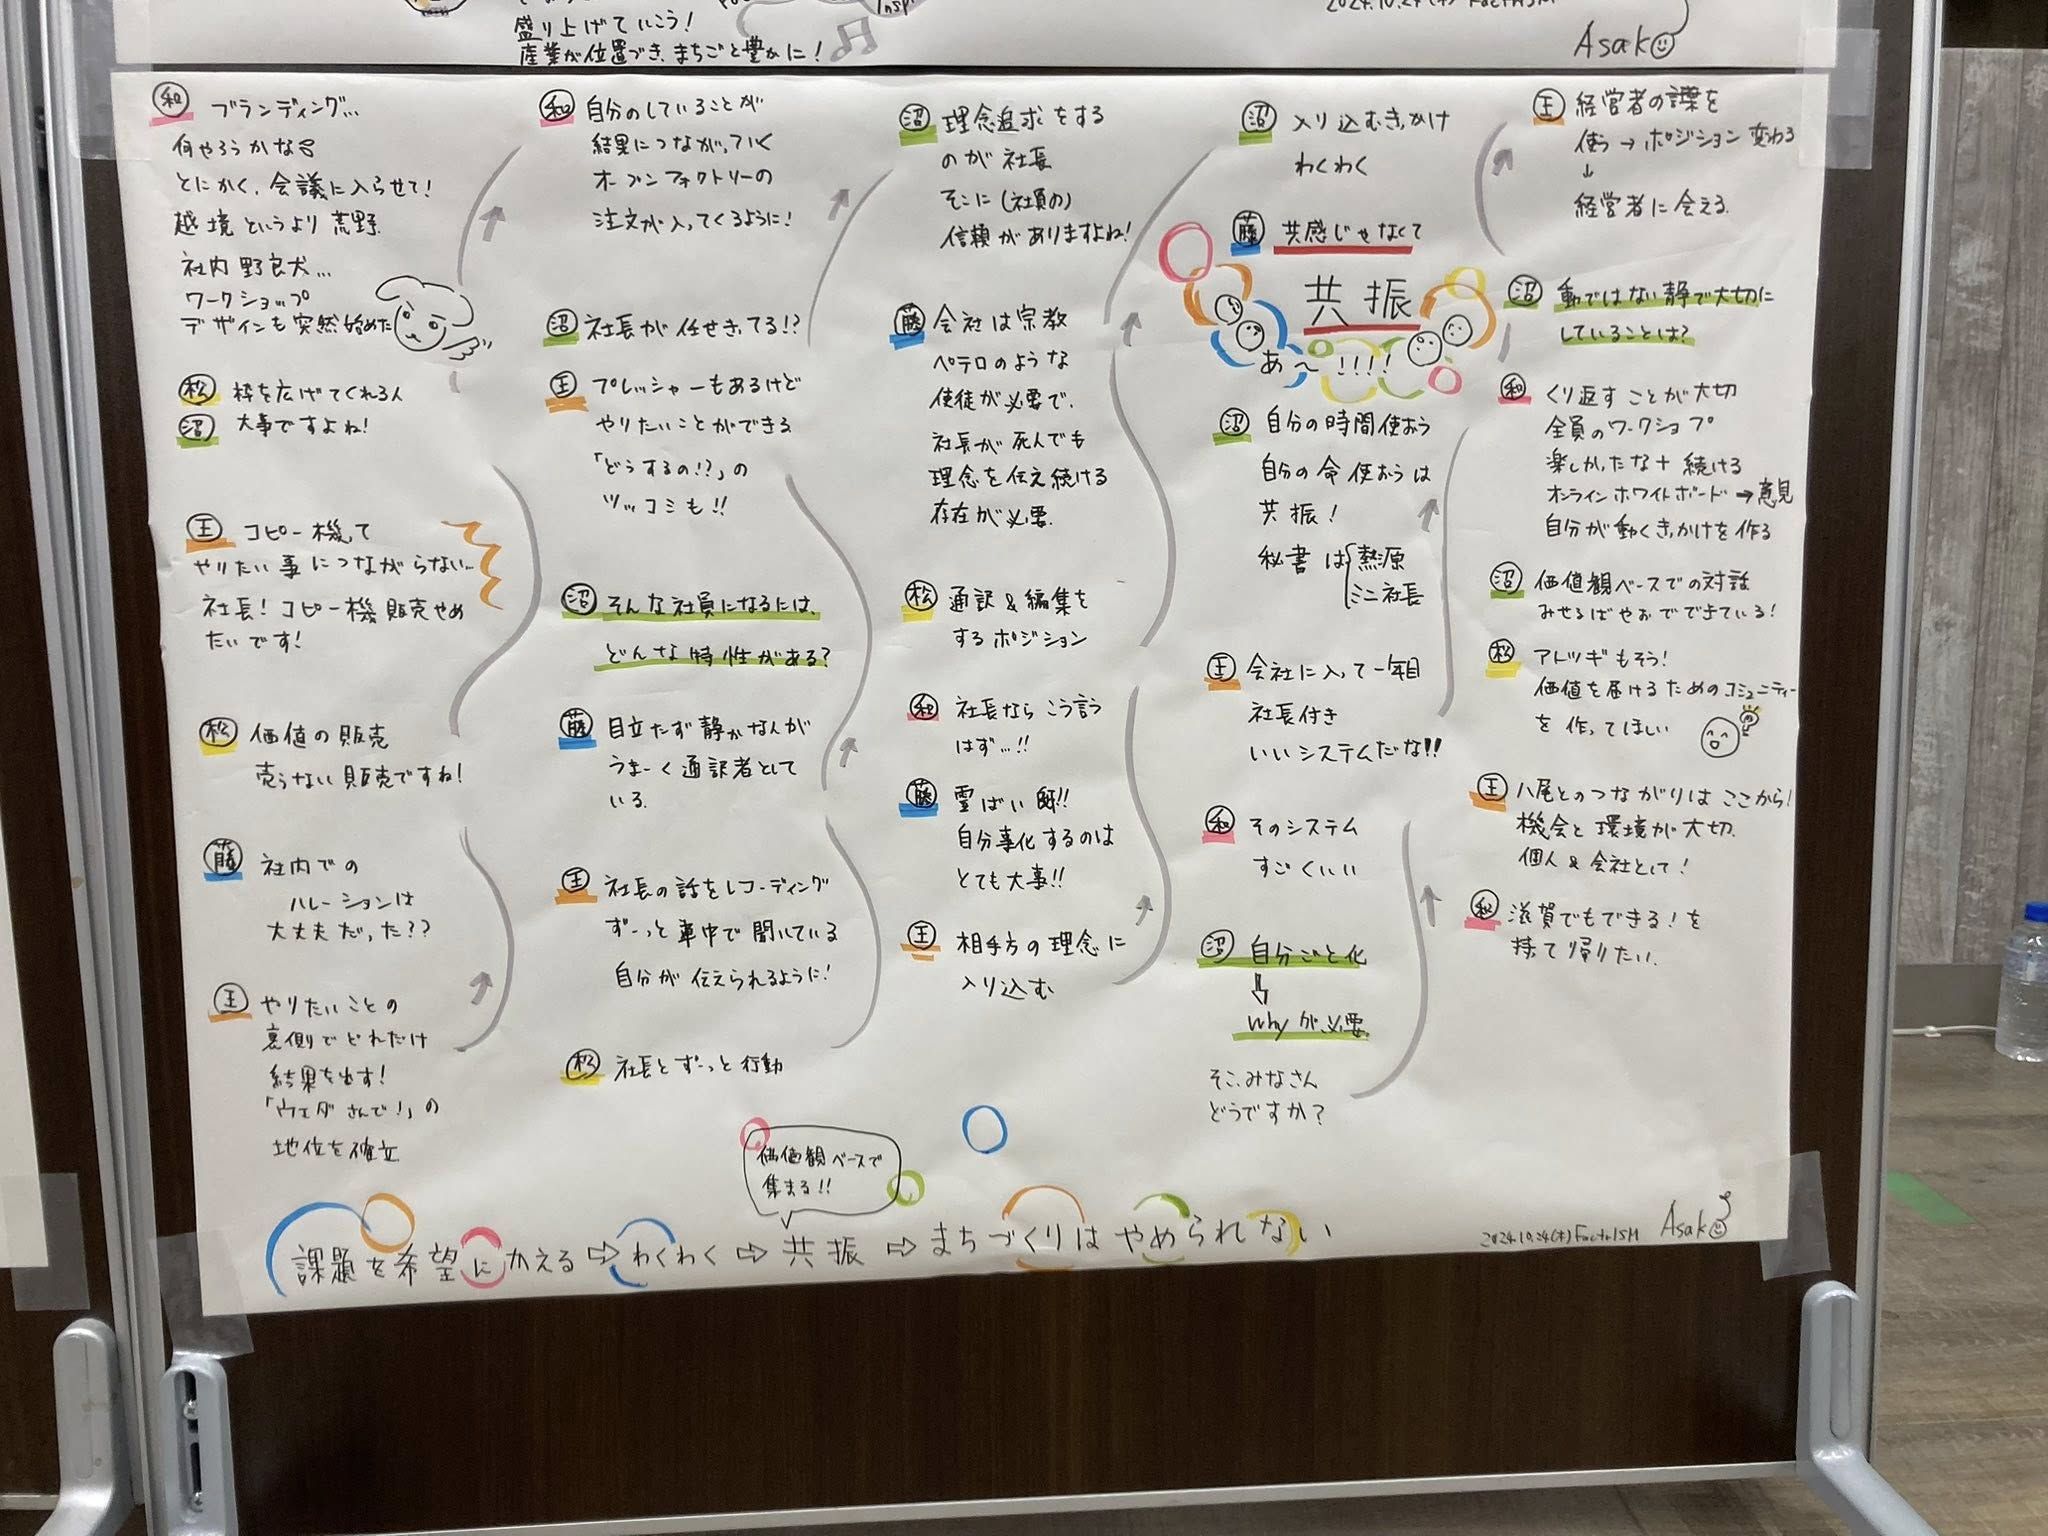 盛り上げていこう!
産業が位置づき、まちごと豊かに!
2024.10.24(木) FactrISM
Asako
和 ブランディング…
何やろうかな
とにかく、会議に入らせて!
越境というより荒野
社内野良犬…
ワークショップ
デザインも突然始めた
松 枠を広げてくれる人
沼 大事ですよね!
王 コピー機って
やりたい事につながらない…
社長!コピー機販売やめ
たいです!
松 価値の販売
売らない販売ですね!
藤 社内での
ハレーションは
大丈夫だった??
王 やりたいことの
裏側でどれだけ
結果を出す!
「ウエダさんで!」の
地位を確立
和 自分のしていることが
結果につながっていく
オープンファクトリーの
注文が入ってくるように!
沼 社長が任せきってる!?
王 プレッシャーもあるけど
やりたいことができる
「どうするの!?」の
ツッコミも!!
沼 そんな社員になるには、
どんな特性がある?
藤 目立たず静かなんが
うまーく通訳者として
いる
王 社長の話をレコーディング
ずーっと車中で聞いている
自分が伝えられるように!
松 社長とずーっと行動
沼 理念追求をする
のが社長
そこに(社員の)
信頼がありますよね!
藤 会社は宗教
ペテロのような
使徒が必要で、
社長が死んでも
理念を伝え続ける
存在が必要
松 通訳&編集を
するポジション
和 社長ならこう言う
はず…!!
藤 霊ばい師!!
自分事化するのは
とても大事!!
王 相手方の理念に
入り込む
沼 入り込むきっかけ
わくわく
藤 共感じゃなくて
共振
あ〜!!!!
沼 自分の時間使おう
自分の命使おうは
共振!
秘書は 熱源
ミニ社長
王 会社に入って一年目
社長付き
いいシステムだな!!
和 そのシステム
すごくいい
沼 自分ごと化
⇩
Whyが必要
そこ、みなさん
どうですか?
王 経営者の課を
使う→ポジション変わる
↓
経営者に会える
沼 動ではない静で大切に
していることは?
和 くり返すことが大切
全員のワークショプ
楽しかったな+続ける
オンラインホワイトボード→意見
自分が動くきっかけを作る
沼 価値観ベースでの対話
みせるばやおでできている!
松 アトツギもそう!
価値を届けるためのコミュニティー
を作ってほしい
王 八尾とのつながりはここから!
機会と環境が大切
個人&会社として!
和 滋賀でもできる!を
持って帰りたい
価値観ベースで
集まる!!
課題を希望にかえる⇨わくわく⇨共振⇨まちづくりはやめられない
2024.10.24(木) FactrISM
Asako